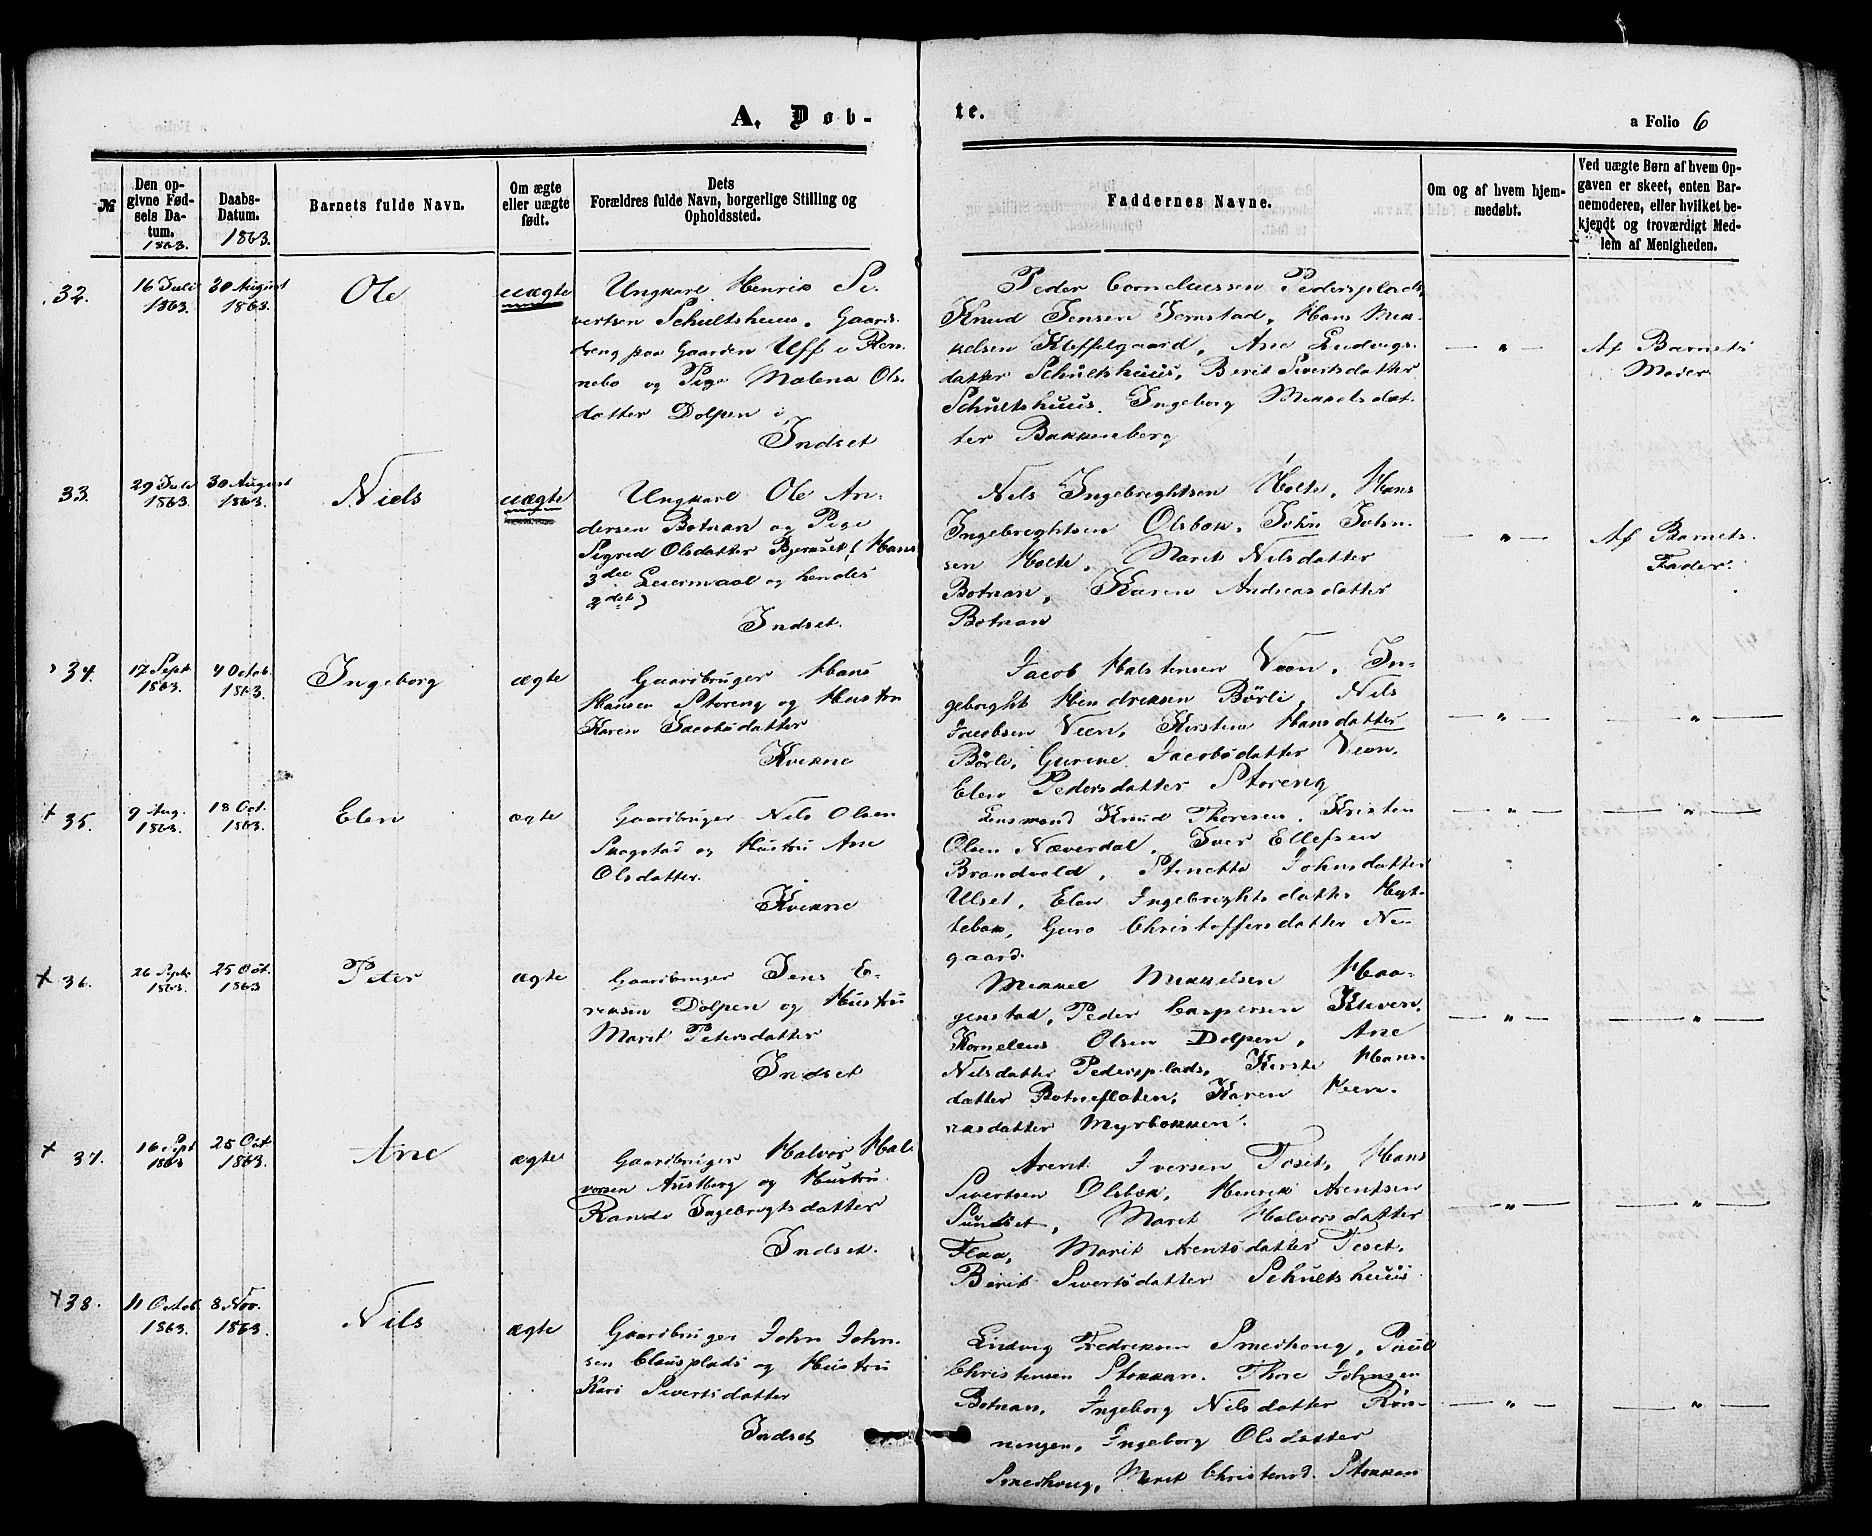 A. Døb-
te.
a Folio 6
№
Den op-
givne Fød-
sels Da-
tum.
1863.
Daabs-
Datum.
1863.
Barnets fulde Navn.
Om ægte
eller uægte
født.
Dets
Forældres fulde Navn, borgerlige Stilling og
Opholdssted.
Faddernes Navne.
Om og af hvem hjem-
medøbt.
Ved uægte Børn af hvem Op-
gaven er skeet, enten Bar-
nemoderen, eller hvilket be-
kjendt og troværdigt Med-
lem af Menigheden.
32.
16 Juli
1863.
30 August
1863.
Ole
uægte
Ungkarl Henrik Si-
vertsen Schultshuus, Gaards-
dreng paa Gaarden Uff i Ren-
nebo og Pige Malena Ols-
datter Dolpen i
Indset
Peder Corneliussen Pedersplads,
Knud Jensen Jernstad, Hans Mik-
kelsen Kleffelgaard, Ane Ludvigs-
datter Schultshuus, Berit Sivertsdatter
Schultshuus. Ingeborg Mikkelsdat-
ter Bakkenberg
— " —
Af Barnets
Moder
33.
29 Juli
1863.
30 August
1863.
Niels
uægte
Ungkarl Ole An-
dersen Botnan og Pige
Sigrid Olsdatter Bjerset (Hans
3die Leiermaal og hendes
2det)
Indset.
Nils Ingebreghtsen Holte, Hans
Ingebreghtsen Olsbak, John John-
sen Holte, Marit Nilsdatter
Botnan, Karen Andreasdatter
Botnan
— " —
Af Barnets
Fader.
34.
17 Sept
1863.
4 Octob.
1863.
Ingeborg
ægte
Gaardbruger Hans
Hansen Storeng og Hustru
Karen Jacobsdatter
Kvikne
Jacob Halstensen Veen, In-
gebreght Hendriksen Børli, Nils
Jacobsen Veen, Kirstine Hansdatter
Børli, Gurine Jacobsdatter Veen,
Elen Pedersdatter Storeng
— " —
— " —
+ 35.
9 Aug.
1863.
18 Oct.
1863.
Elen
ægte
Gaardbruger Nils Olsen
Skogstad og Hustru Ane
Olsdatter.
Kvikne
Lensmand Knud Thoresen, Kristen
Olsen Næverdal, Iver Ellefsen
Brandvold, Stinette Johnsdatter
Ulset, Elen Ingebrightsdatter Hyt-
tebak, Guro Christoffersdatter Ne-
gaard.
— " —
— " —
+ 36.
26 Sept.
1863.
25 Oct.
1863
Peter
ægte
Gaardbruger Jens E-
riksen Dolpen og Hustru
Marit Petersdatter
Indset
Mikkel Mikkelsen Haa-
genstad, Peder Caspersen Kleven,
Kornelius Olsen Dolpen, Ane
Nilsdatter Pedersplads, Kirsti Hans-
datter Botnefloten, Karen Hen-
riksdatter Myrbakken.
— " —
— " —
+ 37.
16 Sept
1863
25 Oct
1863.
Ane
ægte
Gaardbruger Halvor Hal-
vorsen Austberg og Hustru
Randi Ingebregtsdatter
Indset.
Arent Iversen Toset, Hans
Sivertsen Olsbak, Henrik Arentsen
Sundset, Marit Halvorsdatter
Flaa, Marit Arentsdatter Toset,
Berit Sivertsdatter Schultshuus
— " —
— " —
+ 38.
11 Octob
1863.
8 Nov.
1863.
Nils
ægte
Gaardbruger John John-
sen Clausplads og Hustru
Kari Sivertsdatter
Indset
Ludvig Fredriksen Smedhoug, Paul
Christensen Stokkan, Thore Johnsen
Botnan, Ingeborg Nilsdatter Røn-
ningen, Ingeborg Olsdatter
Smedhoug, Marit Christensd. Stokkan
— " —
— " —